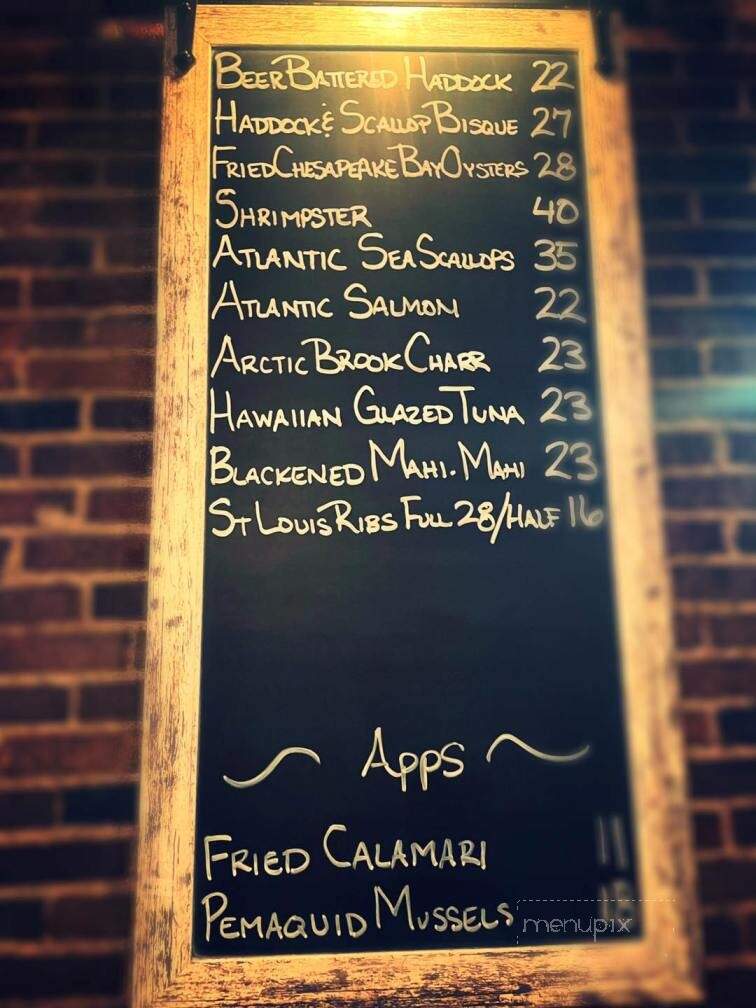 Beer Battered Haddock 22
Haddock & Scallop Bisque 27
Fried Chesapeake Bay Oysters 28
Shrimpster 40
Atlantic Sea Scallops 35
Atlantic Salmon 22
Arctic Brook Charr 23
Hawaiian Glazed Tuna 23
Blackened Mahi-Mahi 23
St Louis Ribs Full 28/Half 16
Apps
Fried Calamari 11
Pemaquid Mussels
menupix